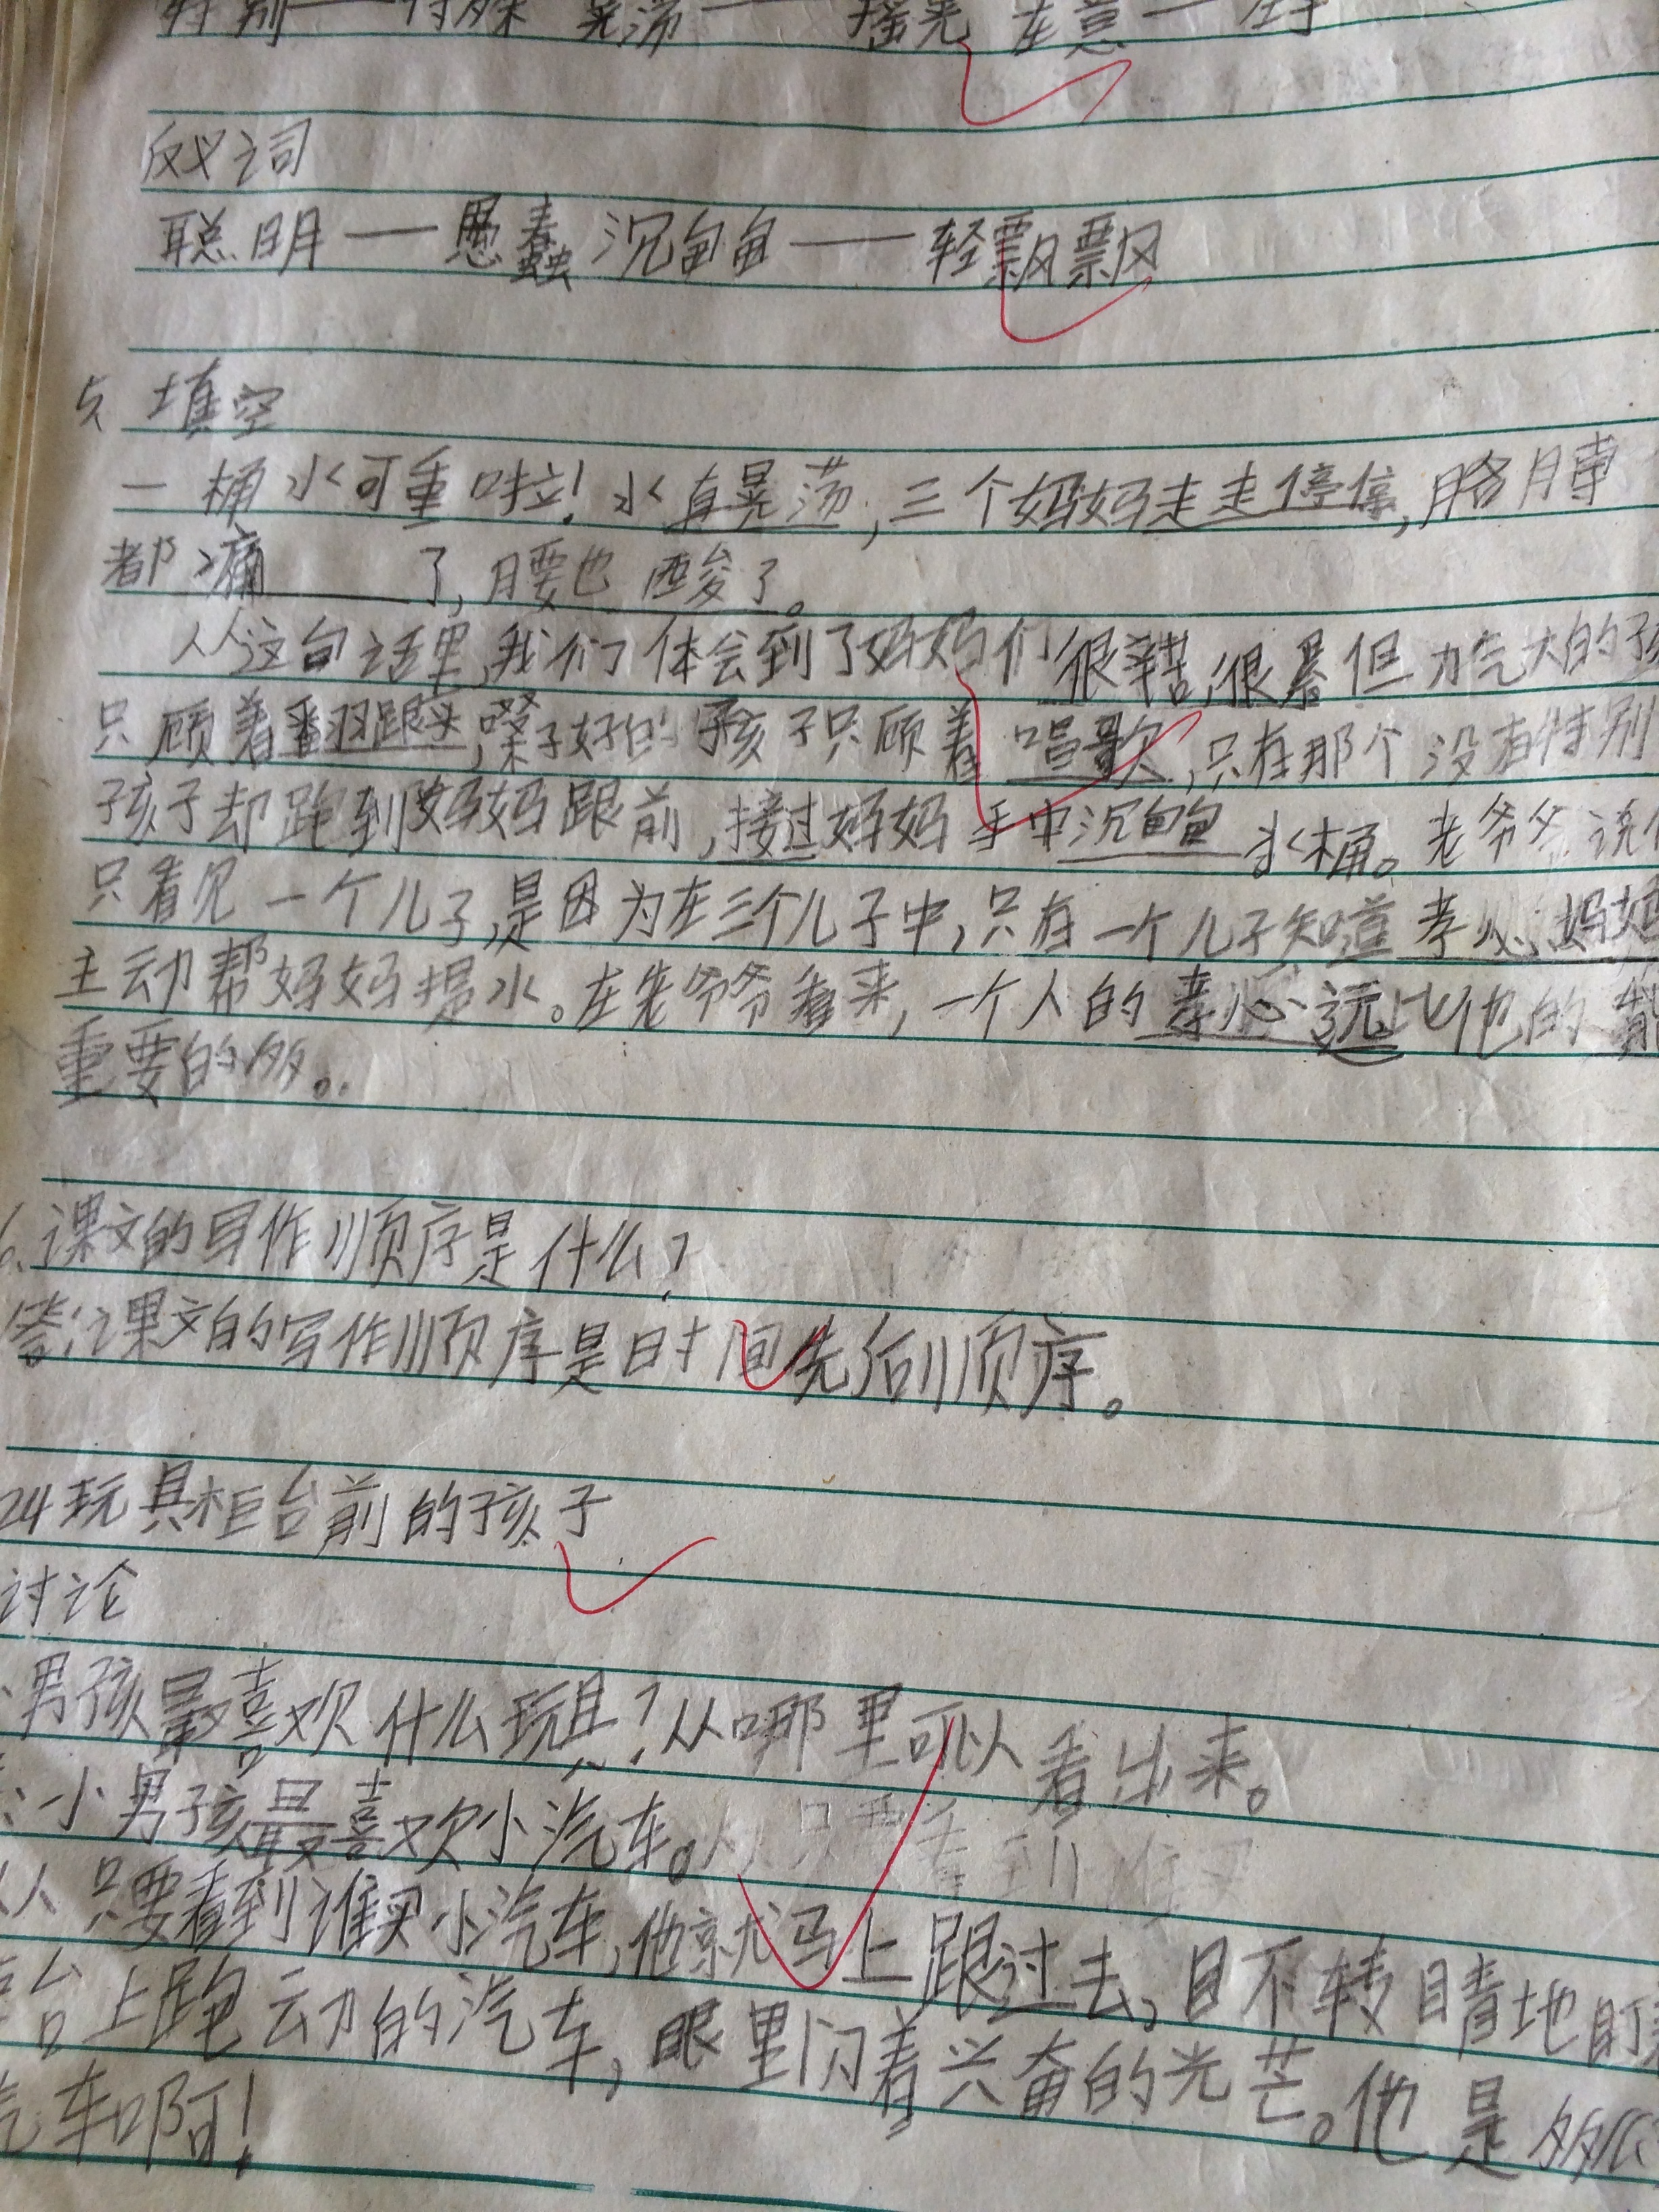 特别——特殊 晃荡——摇晃 在意——在乎
反义词
聪明——愚蠢 沉甸甸——轻飘飘
5、填空
一桶水可重啦！水直晃荡，三个妈妈走走停停，胳膊
都痛 了，腰也酸了。
从这句话里，我们体会到了妈妈们很辛苦，很累但力气大的孩
只顾着翻跟头，嗓子好的孩子只顾着唱歌，只有那个没有特别
孩子却跑到妈妈跟前，接过妈妈手中沉甸甸 水桶。老爷爷说
只看见一个儿子，是因为在三个儿子中，只有一个儿子知道孝心妈妈
主动帮妈妈提水。在老爷爷看来，一个人的孝心远比他的
重要的多。
6.课文的写作顺序是什么？
答：课文的写作顺序是时间先后顺序。
24玩具柜台前的孩子
讨论
男孩最喜欢什么玩具？从哪里可以看出来。
：小男孩最喜欢小汽车。
从只要看到谁买小汽车，他就马上跟过去，目不转睛地盯着
台上跑动的汽车，眼里闪着兴奋的光芒。他是多么
汽车啊！